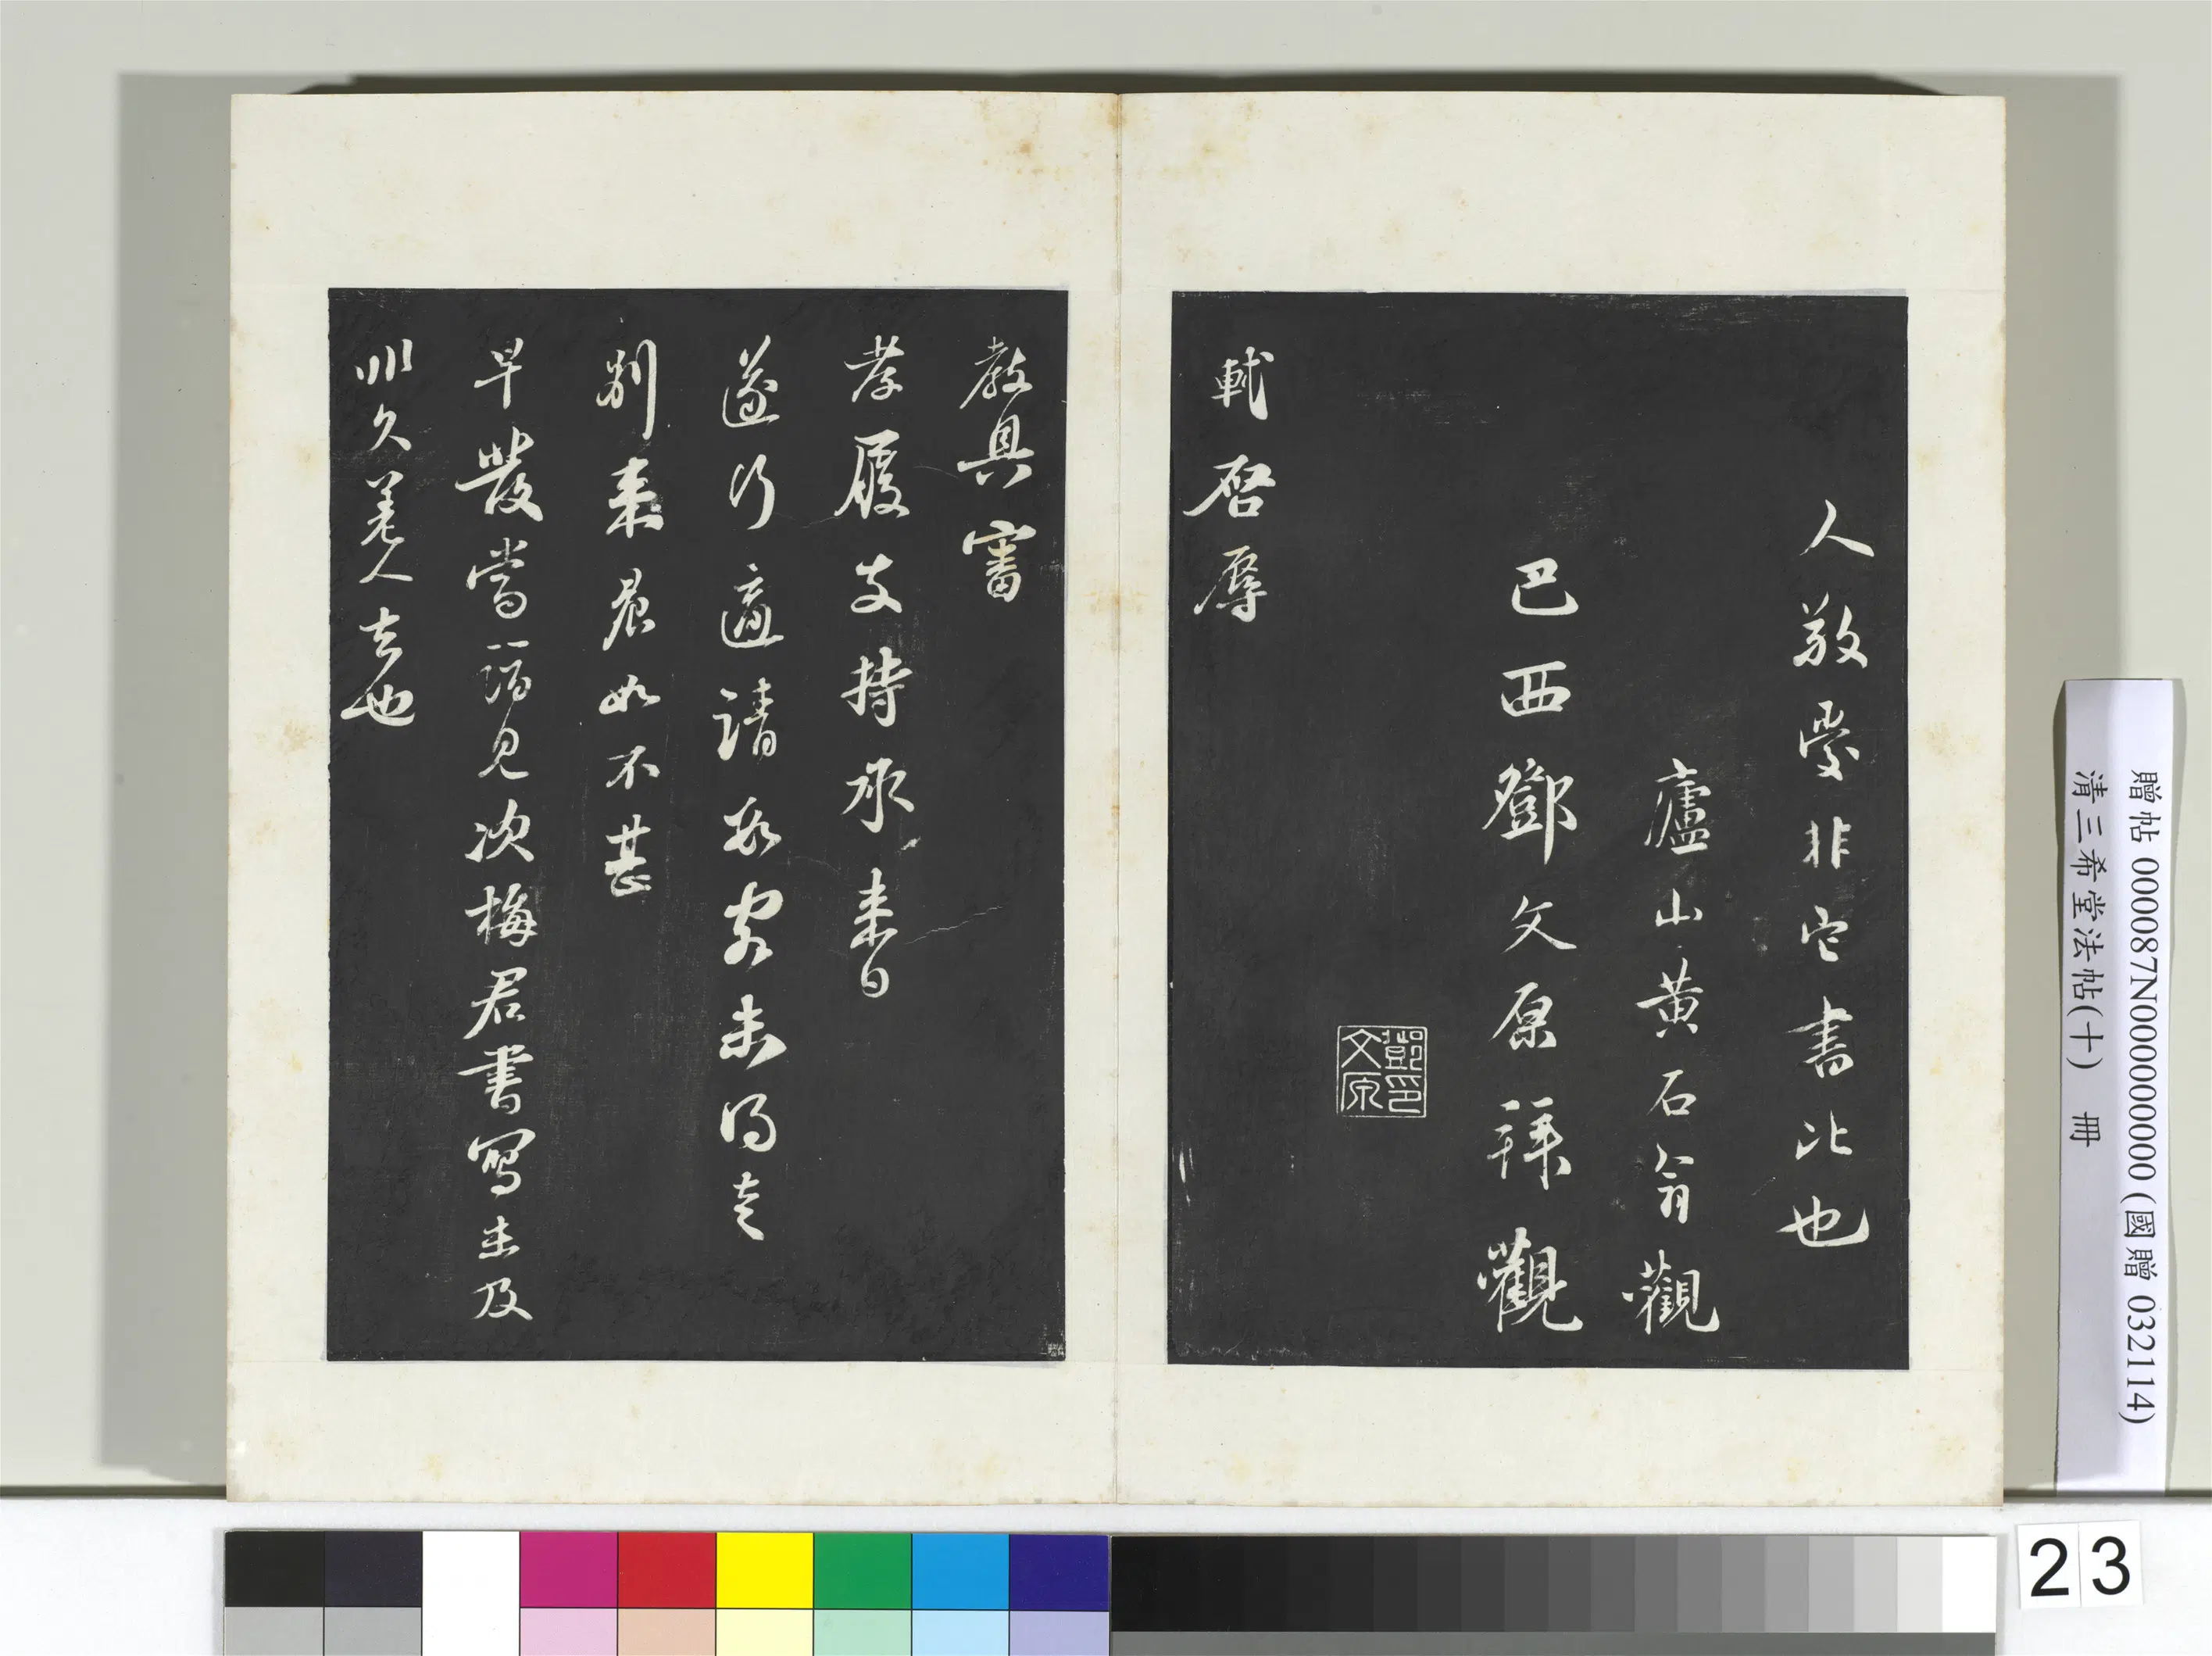 人敬愛非它書比也
廬山黄石翁觀
巴西鄧文原拜觀
鄧文原印
軾啓辱
教具審
孝履支持承來日
遂行適請數客未得走
別來晨如不甚
早發當詣見次梅君書寫未及
非久差人去也
贈帖 000087N000000000 (國贈 032114)
清三希堂法帖(十) 冊
23